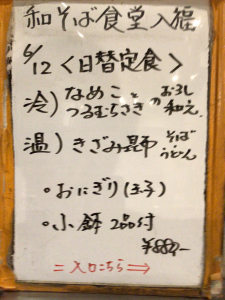 和そば食堂入福
6/12 <日替定食>
冷)なめことつるむらさきのおろし和え
温)きざみ昆布 そば うどん
・おにぎり(玉子)
・小鉢 2品付
¥880-
=入口こちら⇒